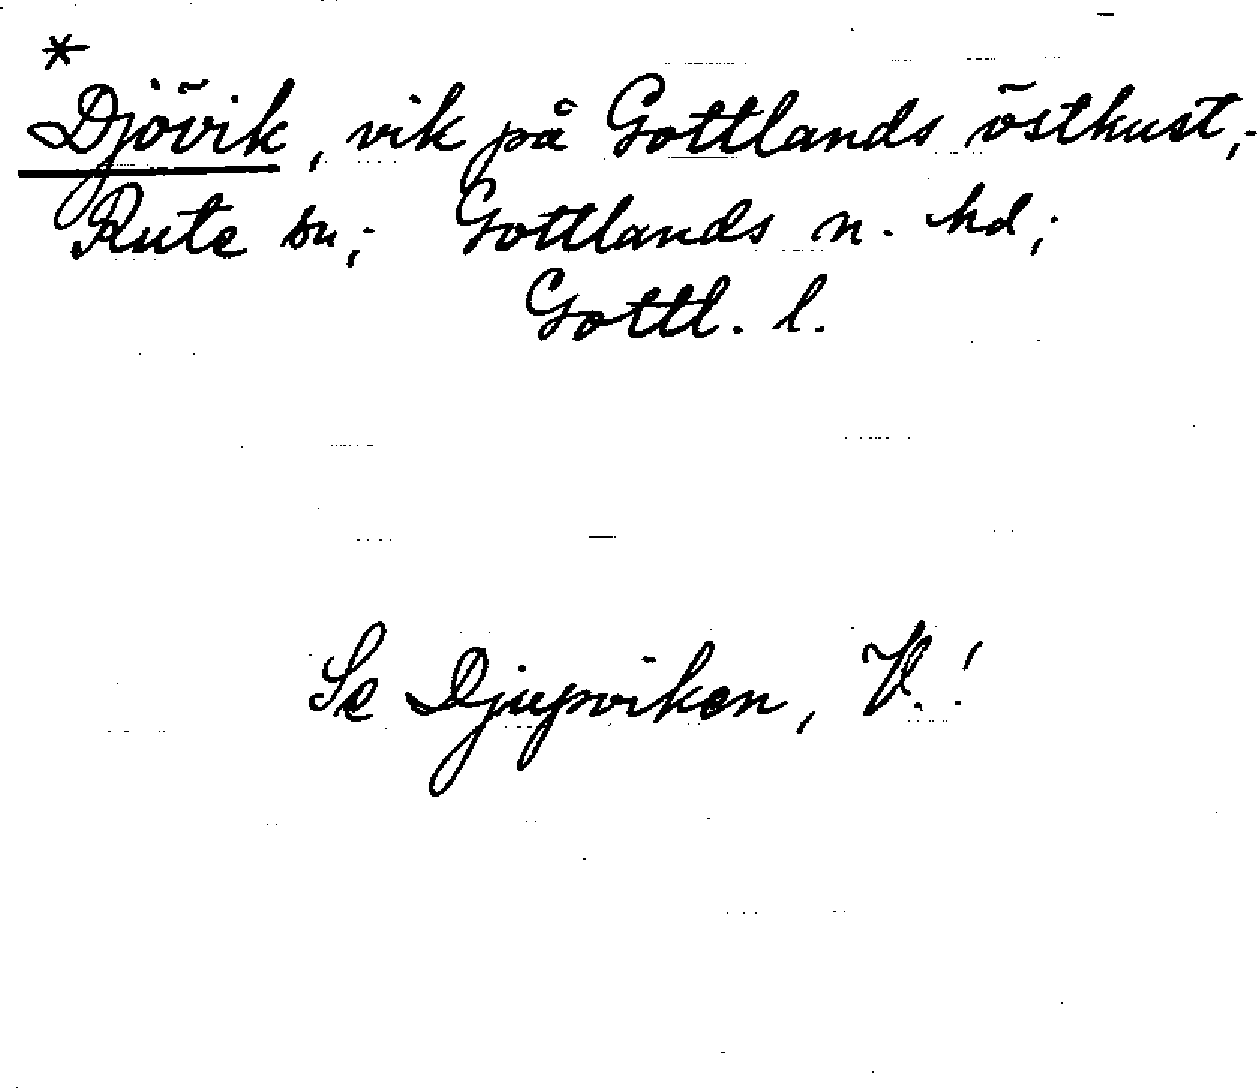 *
Djövik, vik på Gottlands östkust;
Rute sn; Gottlands n. hd;
Gottl. l.
Se Djupviken, V.!